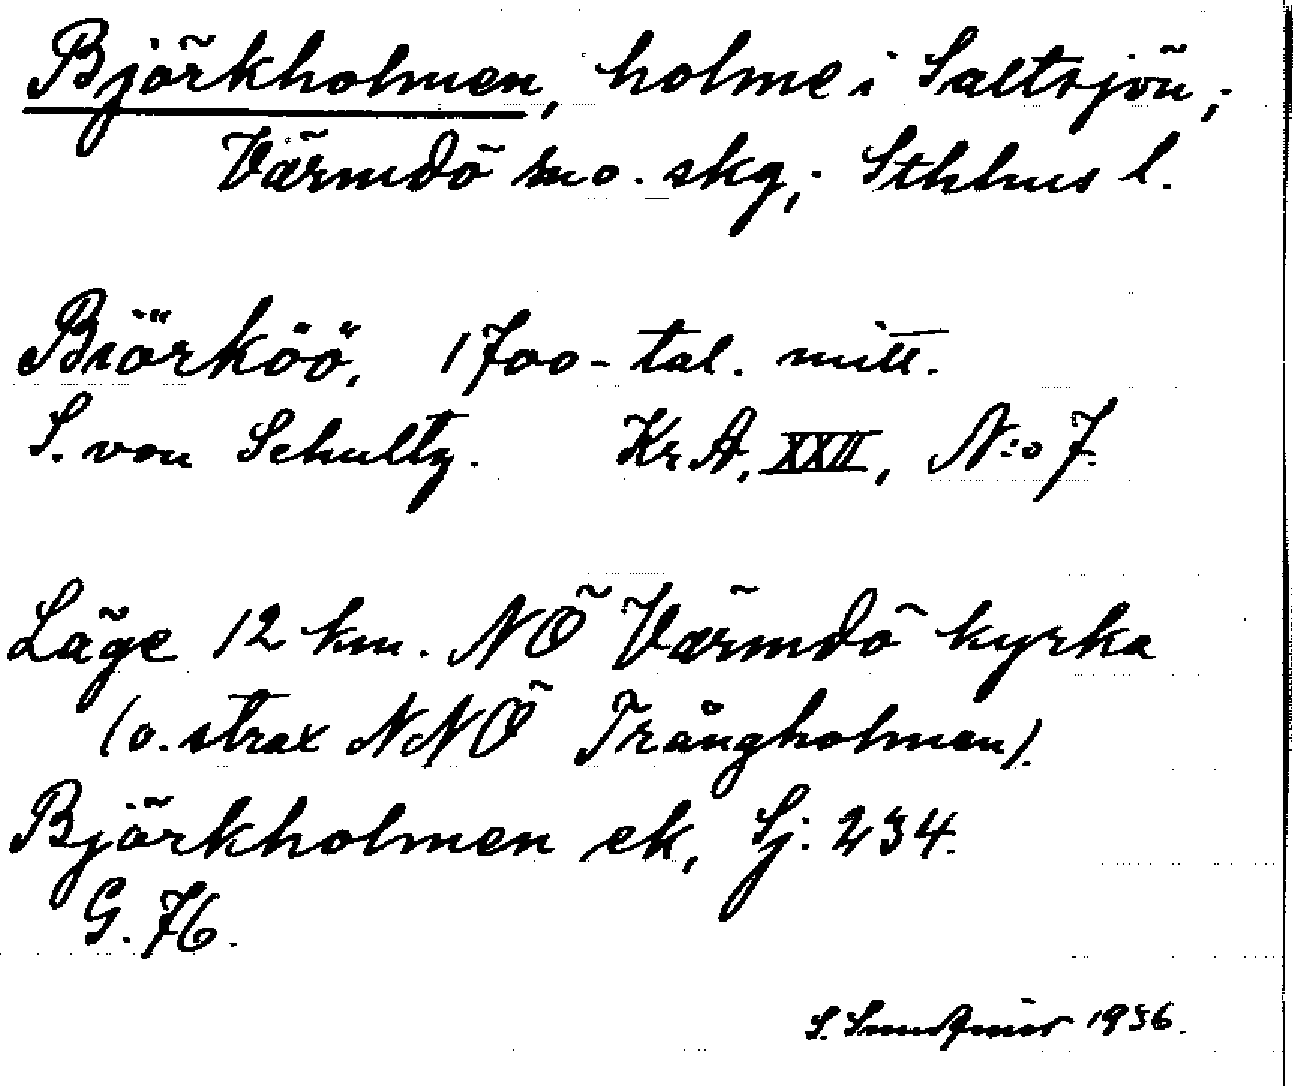 Björkholmen, holme i Saltsjön,
Värmdö sn o. skg, Sthlms l.
Biörköö, 1700-tal. mitt.
S. von Schultz. KrA, XXII, N:o 7.
Läge 12 km. NÖ Värmdö kyrka
(o. strax NNÖ Trångholmen).
Björkholmen ek, Sj: 234.
G. 76.
S. 1936.